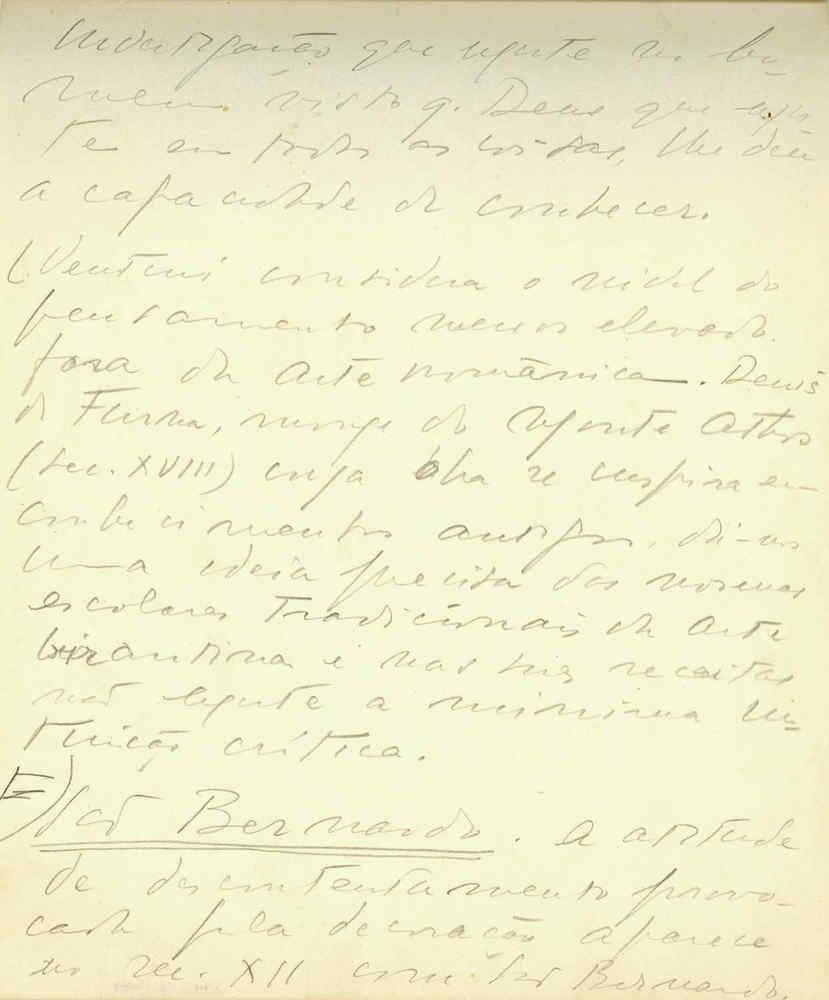 investigação que existe no ho-
mem visto q. Deus que exis-
te em todas as coisas, lhe deu
a capacidade de conhecer.
(Venturi considera o nível do
pensamento menos elevado
fora da Arte românica. Denis
de Furna, monge do Monte Athos
(sec. XVIII) cuja obra se inspira em
conhecimentos antigos, dá-nos
uma ideia precisa das normas
escolares tradicionais da Arte
bizantina e nas suas receitas
não existe a minima in-
tuição crítica.
E) São Bernardo. A atitude
de descontentamento provo-
cada pela decoração aparece
no sec. XII com São Bernardo.